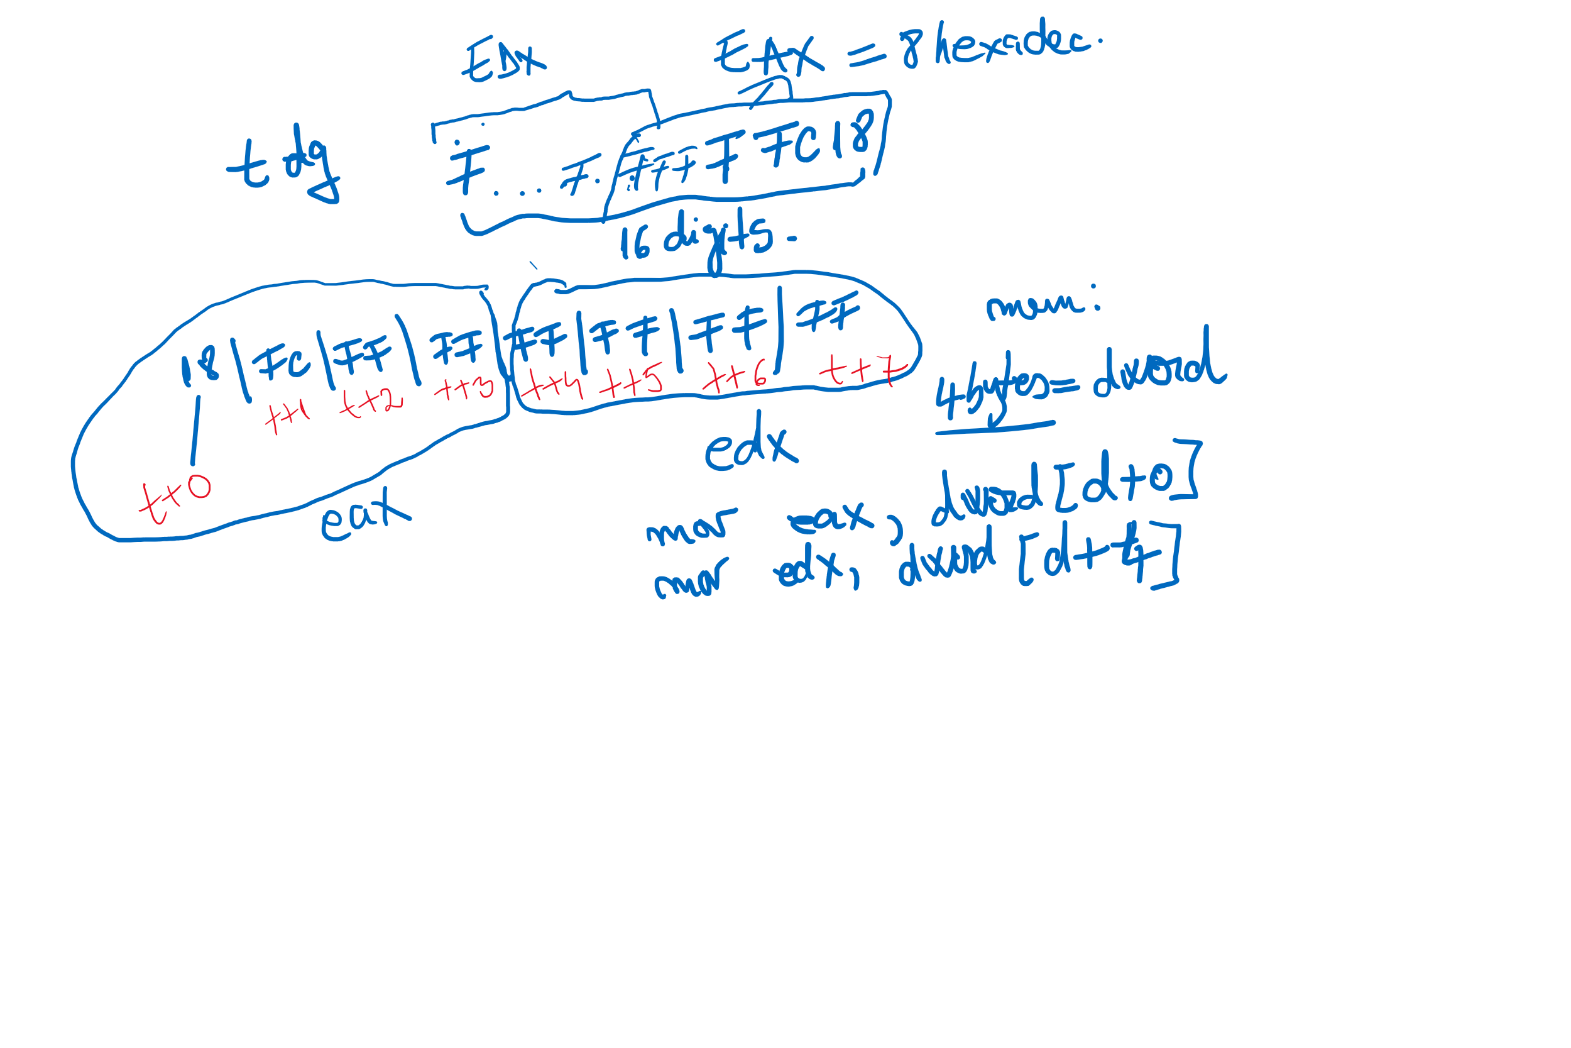 EDX EAX = 8 hexadec.
t dq F... F. FFF F FC18
16 digits.
18 | FC | FF | FF | FF | FF | FF | FF
t+1 t+2 t+3 t+4 t+5 t+6 t+7
t+0
eax
edx
mem:
4 bytes = dword
mov eax, dword [d+0]
mov edx, dword [d+4]